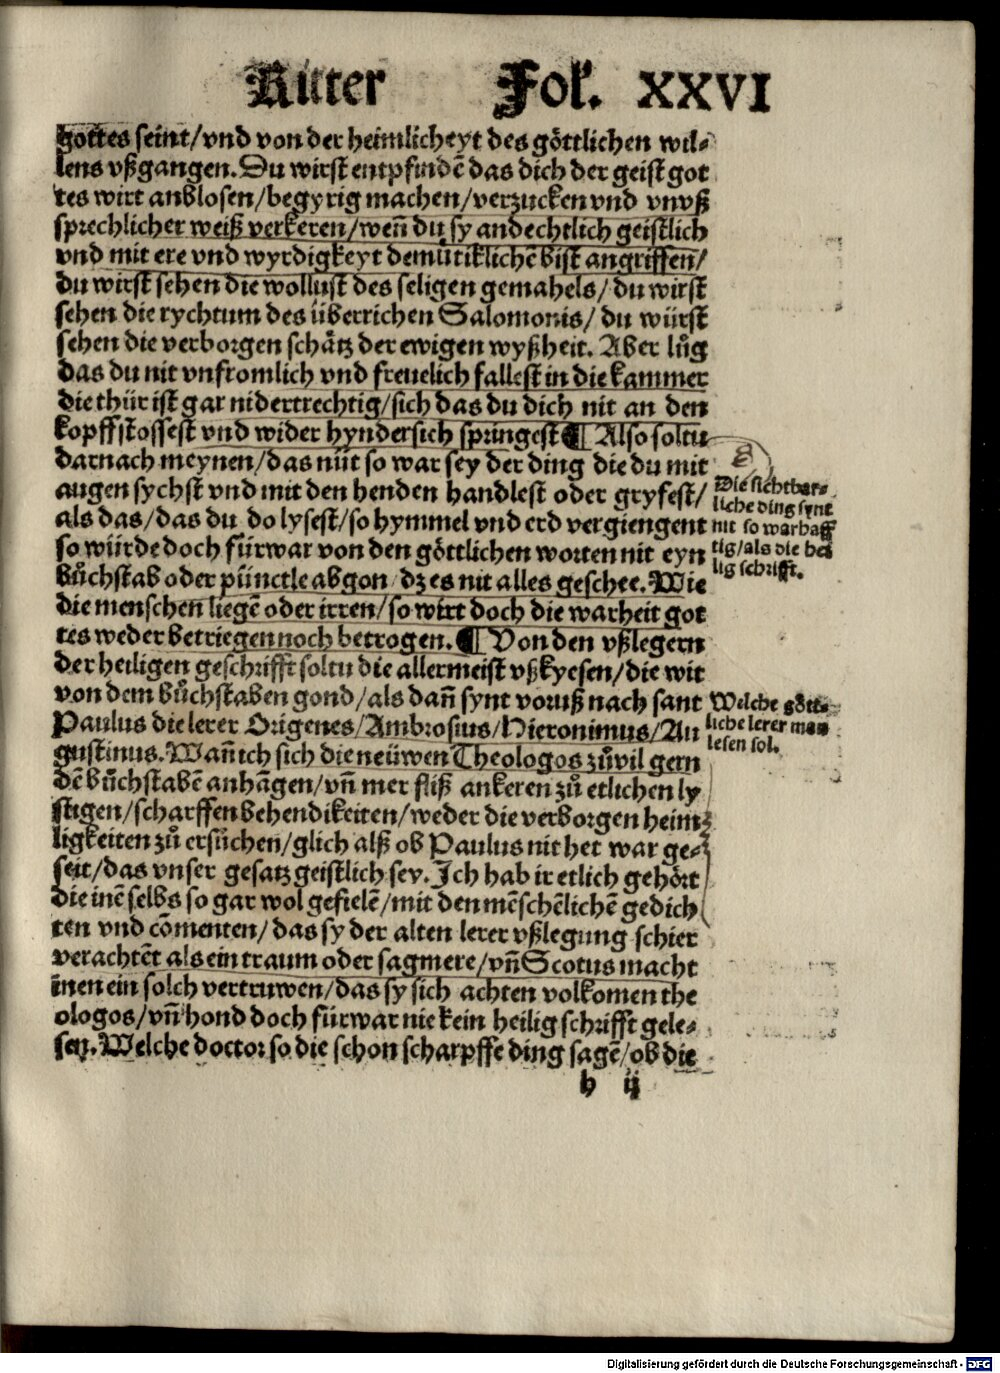 Ritter Fol. XXVI
gottes seint/vnd von der heimlicheyt des göttlichen wil⸗
lens vßgangen. Du wirst entpfindē das dich der geist got
tes wirt anblosen/begyrig machen/verzucken vnd vnuß
sprechlicher weiß verkeren/weñ du sy andechtlich geistlich
vnd mit ere vnd wyrdigkeyt demütiklichē bist angriffen/
du wirst sehen die wollust des seligen gemahels/du wirst
sehen die rychtum des überrichen Salomonis/du würst
sehen die verborgen schätz der ewigen wyßheit. Aber lůg
das du nit vnfromlich vnd freuelich fallest in die kammer
die thür ist gar nidertrechtig/sich das du dich nit an den
kopff stossest vnd wider hyndersich springest ¶ Also soltu
darnach meynen/das nüt so war sey der ding die du mit
augen sychst vnd mit den henden handlest oder gryfest/
als das/das du do lysest/so hymmel vnd erd vergiengent
so würde doch fürwar von den göttlichen worten nit eyn
bůchstab oder pünctle abgon/dz es nit alles geschee. Wie
die menschen liegē oder irren/so wirt doch die warheit got
tes weder betriegen noch betrogen. ¶ Von den vßlegern
der heiligen geschrifft soltu die allermeist vßkyesen/die wit
von dem bůchstaben gond/als dañ synt voruß nach sant
Paulus die lerer Origenes/Ambrosius/Hieronimus/Au
gustinus. Wañ ich sich die neüwen Theologos zůvil gern
dē bůchstabē anhāgen/vñ mer fliß ankeren zů etlichen ly
stigen/scharffen behendikeiten/weder die verborgen heim⸗
ligkeiten zů ersüchen/glich alß ob Paulus nit het war ge⸗
seit/das vnser gesatz geistlich sey. Ich hab ir etlich gehört
die inē selbs so gar wol gefielē/mit den mēschēlichē gedich
ten vnd cōmenten/das sy der alten lerer vßlegung schier
verachtēt als ein traum oder sagmere/vñ Scotus macht
īnen ein solch vertruwen/das sy sich achten volkomen the
ologos/vñ hond doch fürwar nie kein heilig schrifft gele⸗
sen. Welche doctor so die schon scharpffe ding sagē/ob die
h ij
Die sichtbar⸗
liche ding synt
nit so warhaff
tig/als die hei
lig schrifft.
Welche gött⸗
liche lerer man
lesen sol.
Digitalisierung gefördert durch die Deutsche Forschungsgemeinschaft - DFG